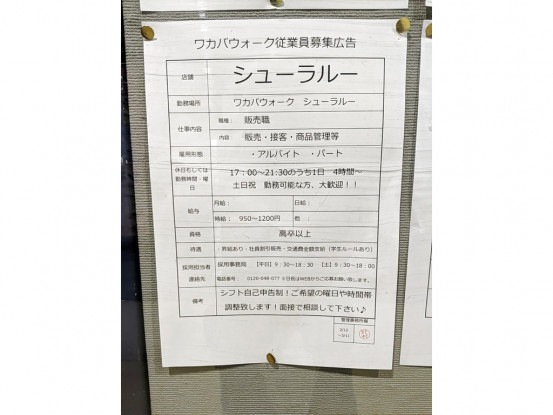 ワカバウォーク従業員募集広告
店舗 シューラルー
勤務場所 ワカバウォーク シューラルー
仕事内容 職種： 販売職
内容： 販売・接客・商品管理等
雇用形態 ・アルバイト ・パート
休日もしくは
勤務時間・曜
日
17：00～21:30のうち1日 4時間～
土日祝 勤務可能な方、大歓迎！！
給与 月給： 日給：
時給： 950～1200円 他：
資格 高卒以上
待遇 ・昇給あり・社員割引販売・交通費全額支給（学生ルールあり）
採用担当者
連絡先
採用事務局 【平日】9：30～18：30 【土】9：30～18：00
電話番号 0120-548-077
備考 シフト自己申告制！ご希望の曜日や時間帯
調整致します！面接で相談して下さい♪
管理事務所印